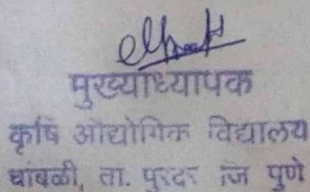 मुख्याध्यापक
कृषि औद्योगिक विद्यालय
चांबळी, ता. पुरंदर जि पुणे